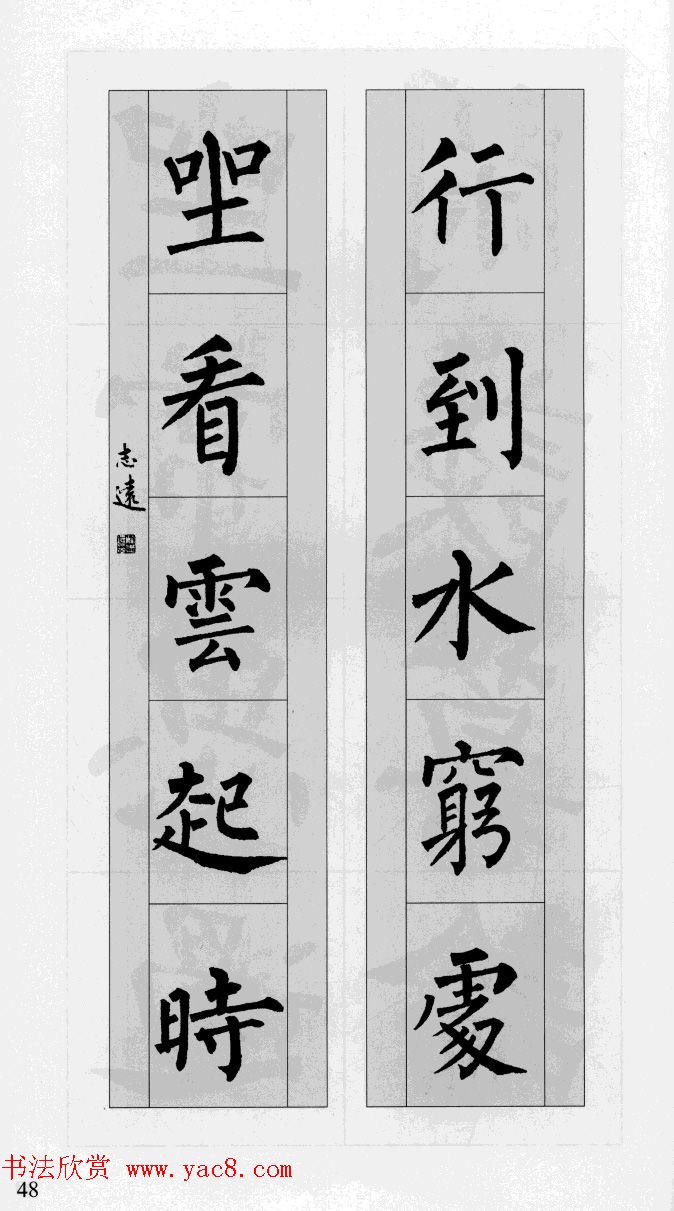 行到水窮處
坐看雲起時
志遠
书法欣赏 www.yac8.com
48